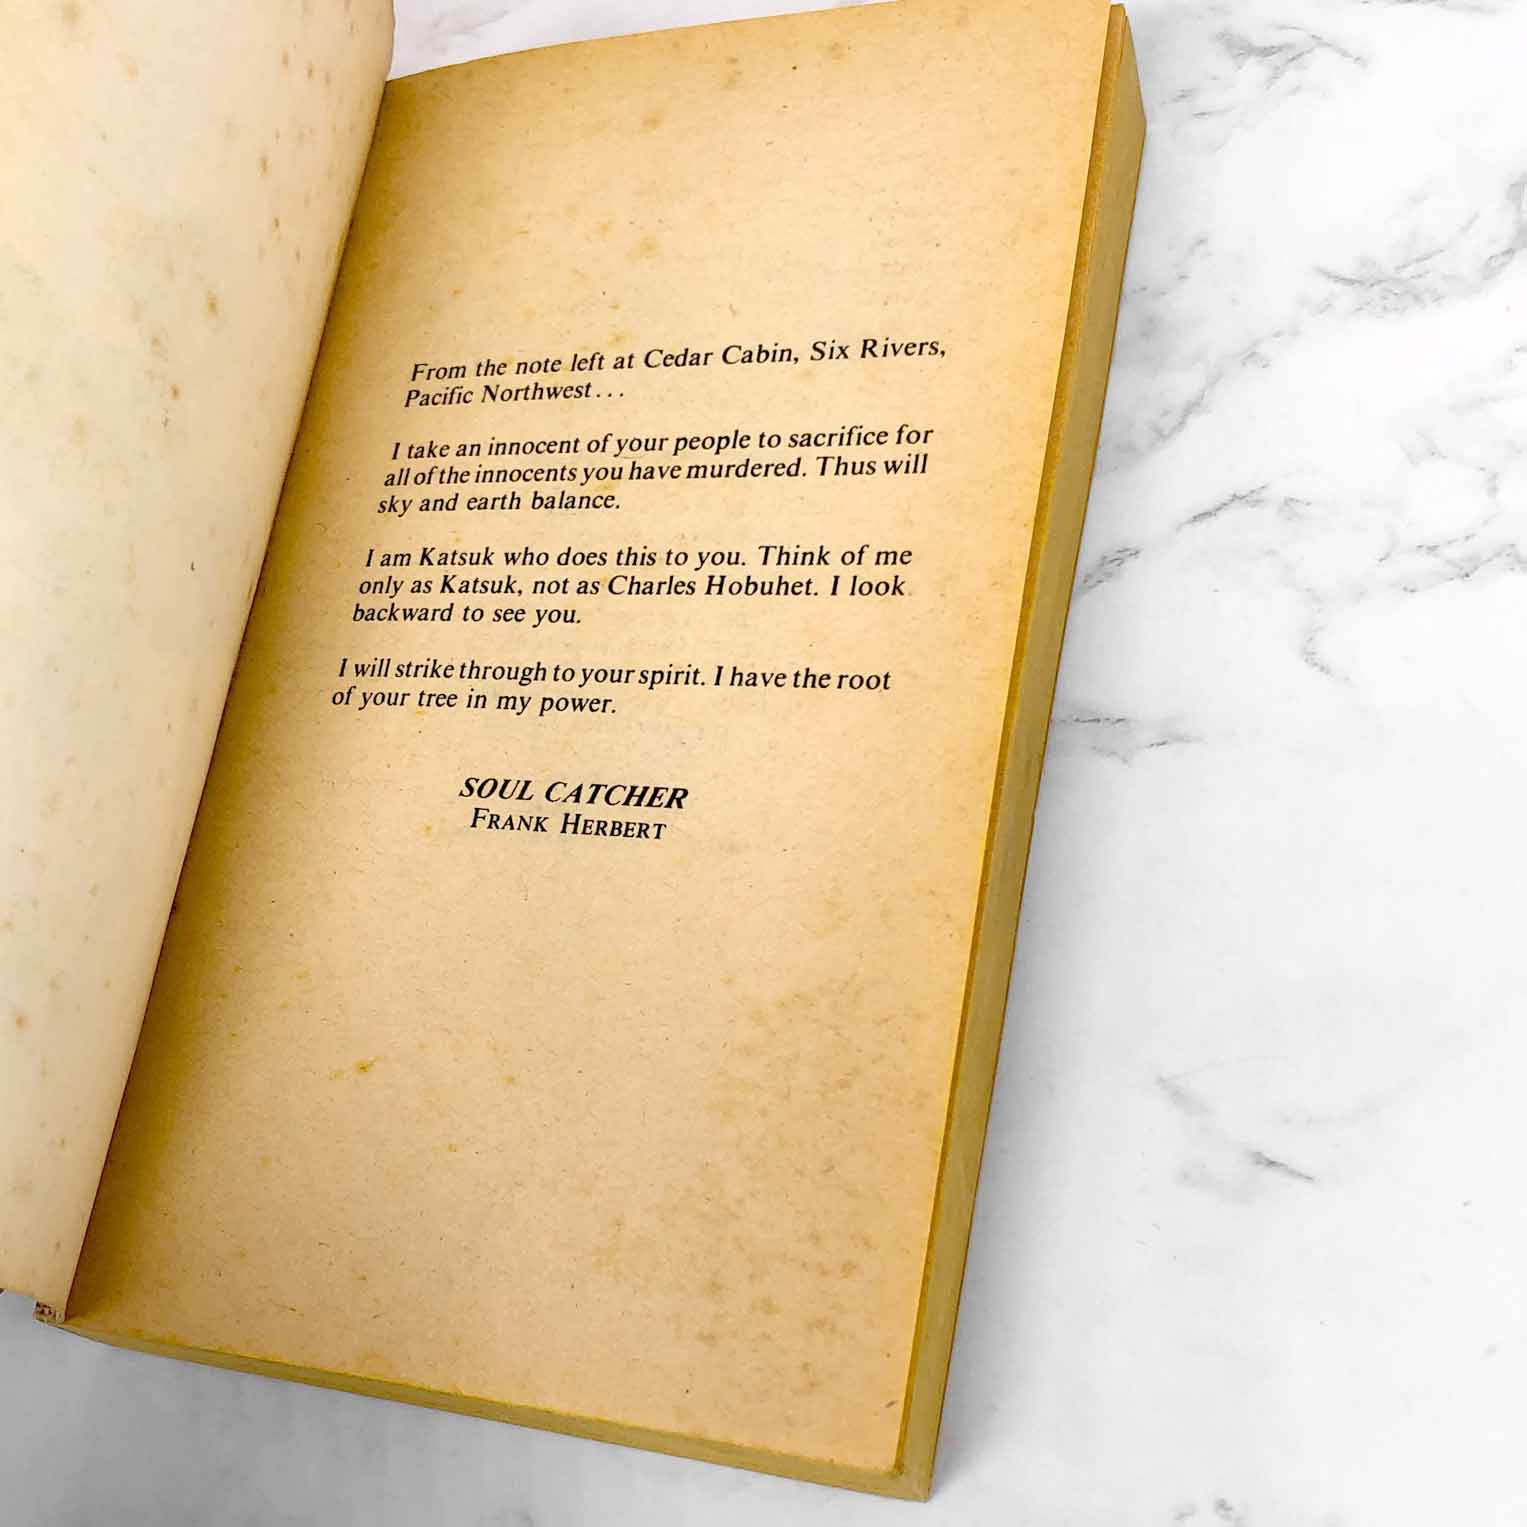 From the note left at Cedar Cabin, Six Rivers,
Pacific Northwest...
I take an innocent of your people to sacrifice for
all of the innocents you have murdered. Thus will
sky and earth balance.
I am Katsuk who does this to you. Think of me
only as Katsuk, not as Charles Hobuhet. I look
backward to see you.
I will strike through to your spirit. I have the root
of your tree in my power.
SOUL CATCHER
FRANK HERBERT